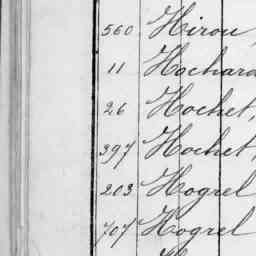 560 Hirou,
11 Hochard
26 Hochet,
397 Hochet,
203 Hogrel
707 Hogrel